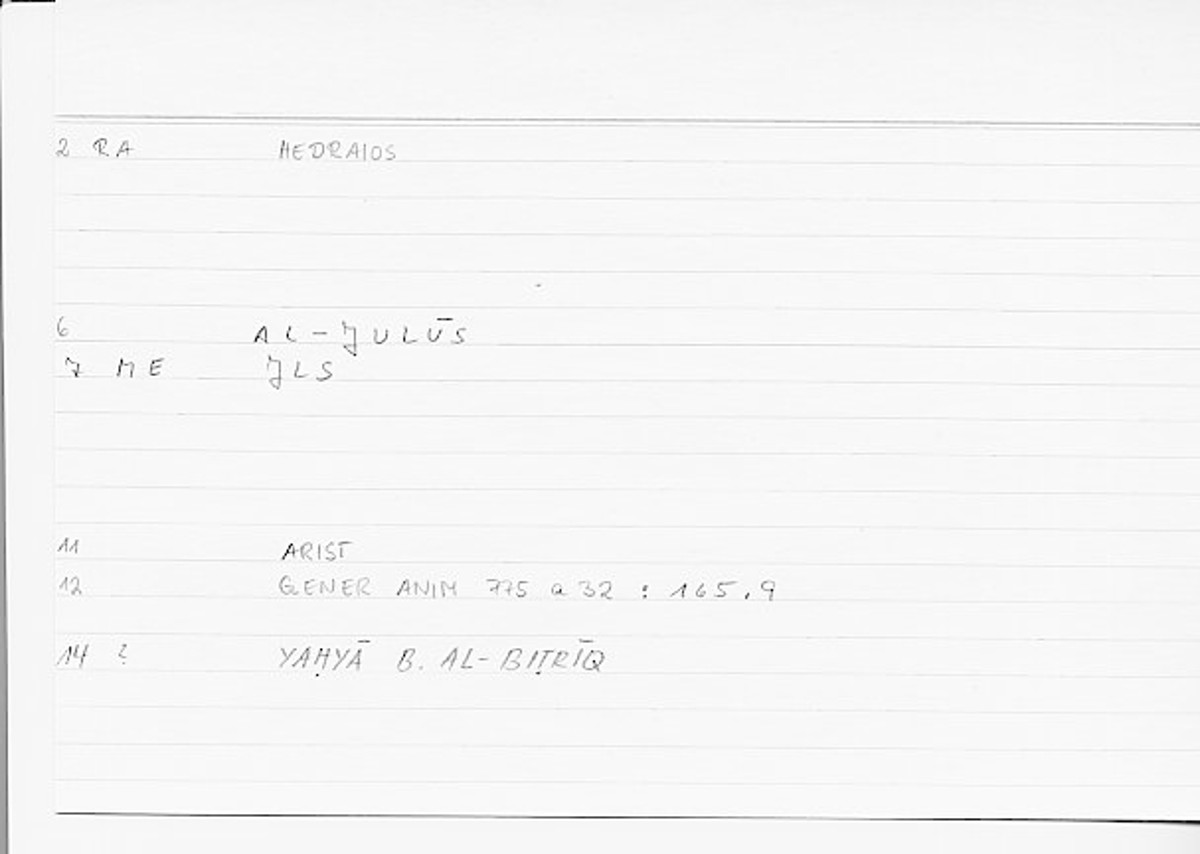 2 RA HEDRAIOS
6 AL-JULŪS
7 ME JLS
11 ARIST
12 GENER ANIM 775 a 32 : 165,9
14 ? YAḤYĀ B. AL-BIṬRĪQ